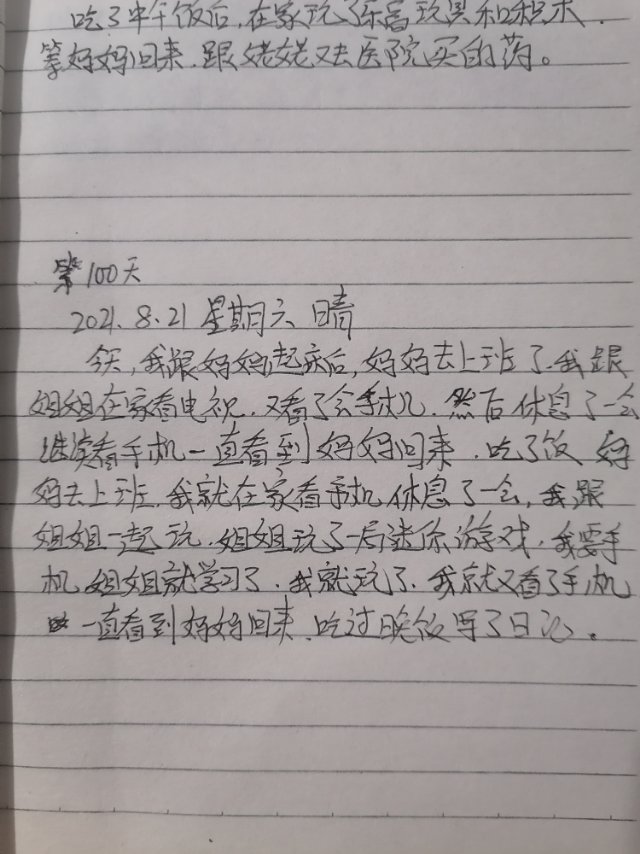 吃了中午饭后,在家玩了乐高玩具和积木.
等妈妈回来.跟姥姥又去医院买的药。
第100天
2021.8.21 星期六 晴
今天,我跟妈妈起床后,妈妈去上班了.我跟
姐姐在家看电视.又看了会手机.然后休息了一会
继续看手机一直看到妈妈回来.吃了饭 妈
妈去上班.我就在家看手机休息了一会,我跟
姐姐一起玩.姐姐玩了一局迷你游戏.我要手
机 姐姐就学习了.我就玩了.我就又看了手机
一直看到妈妈回来.吃过晚饭写了日记。